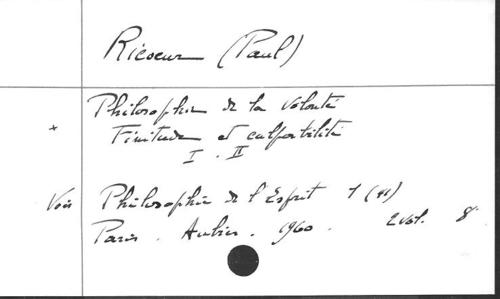 Ricoeur (Paul)
Philosophie de la Volonté
+ Finitude et culpabilité
I. II
Voir Philosophie de l'Esprit
Paris. Aubier. 1960. 2 vol. 8°